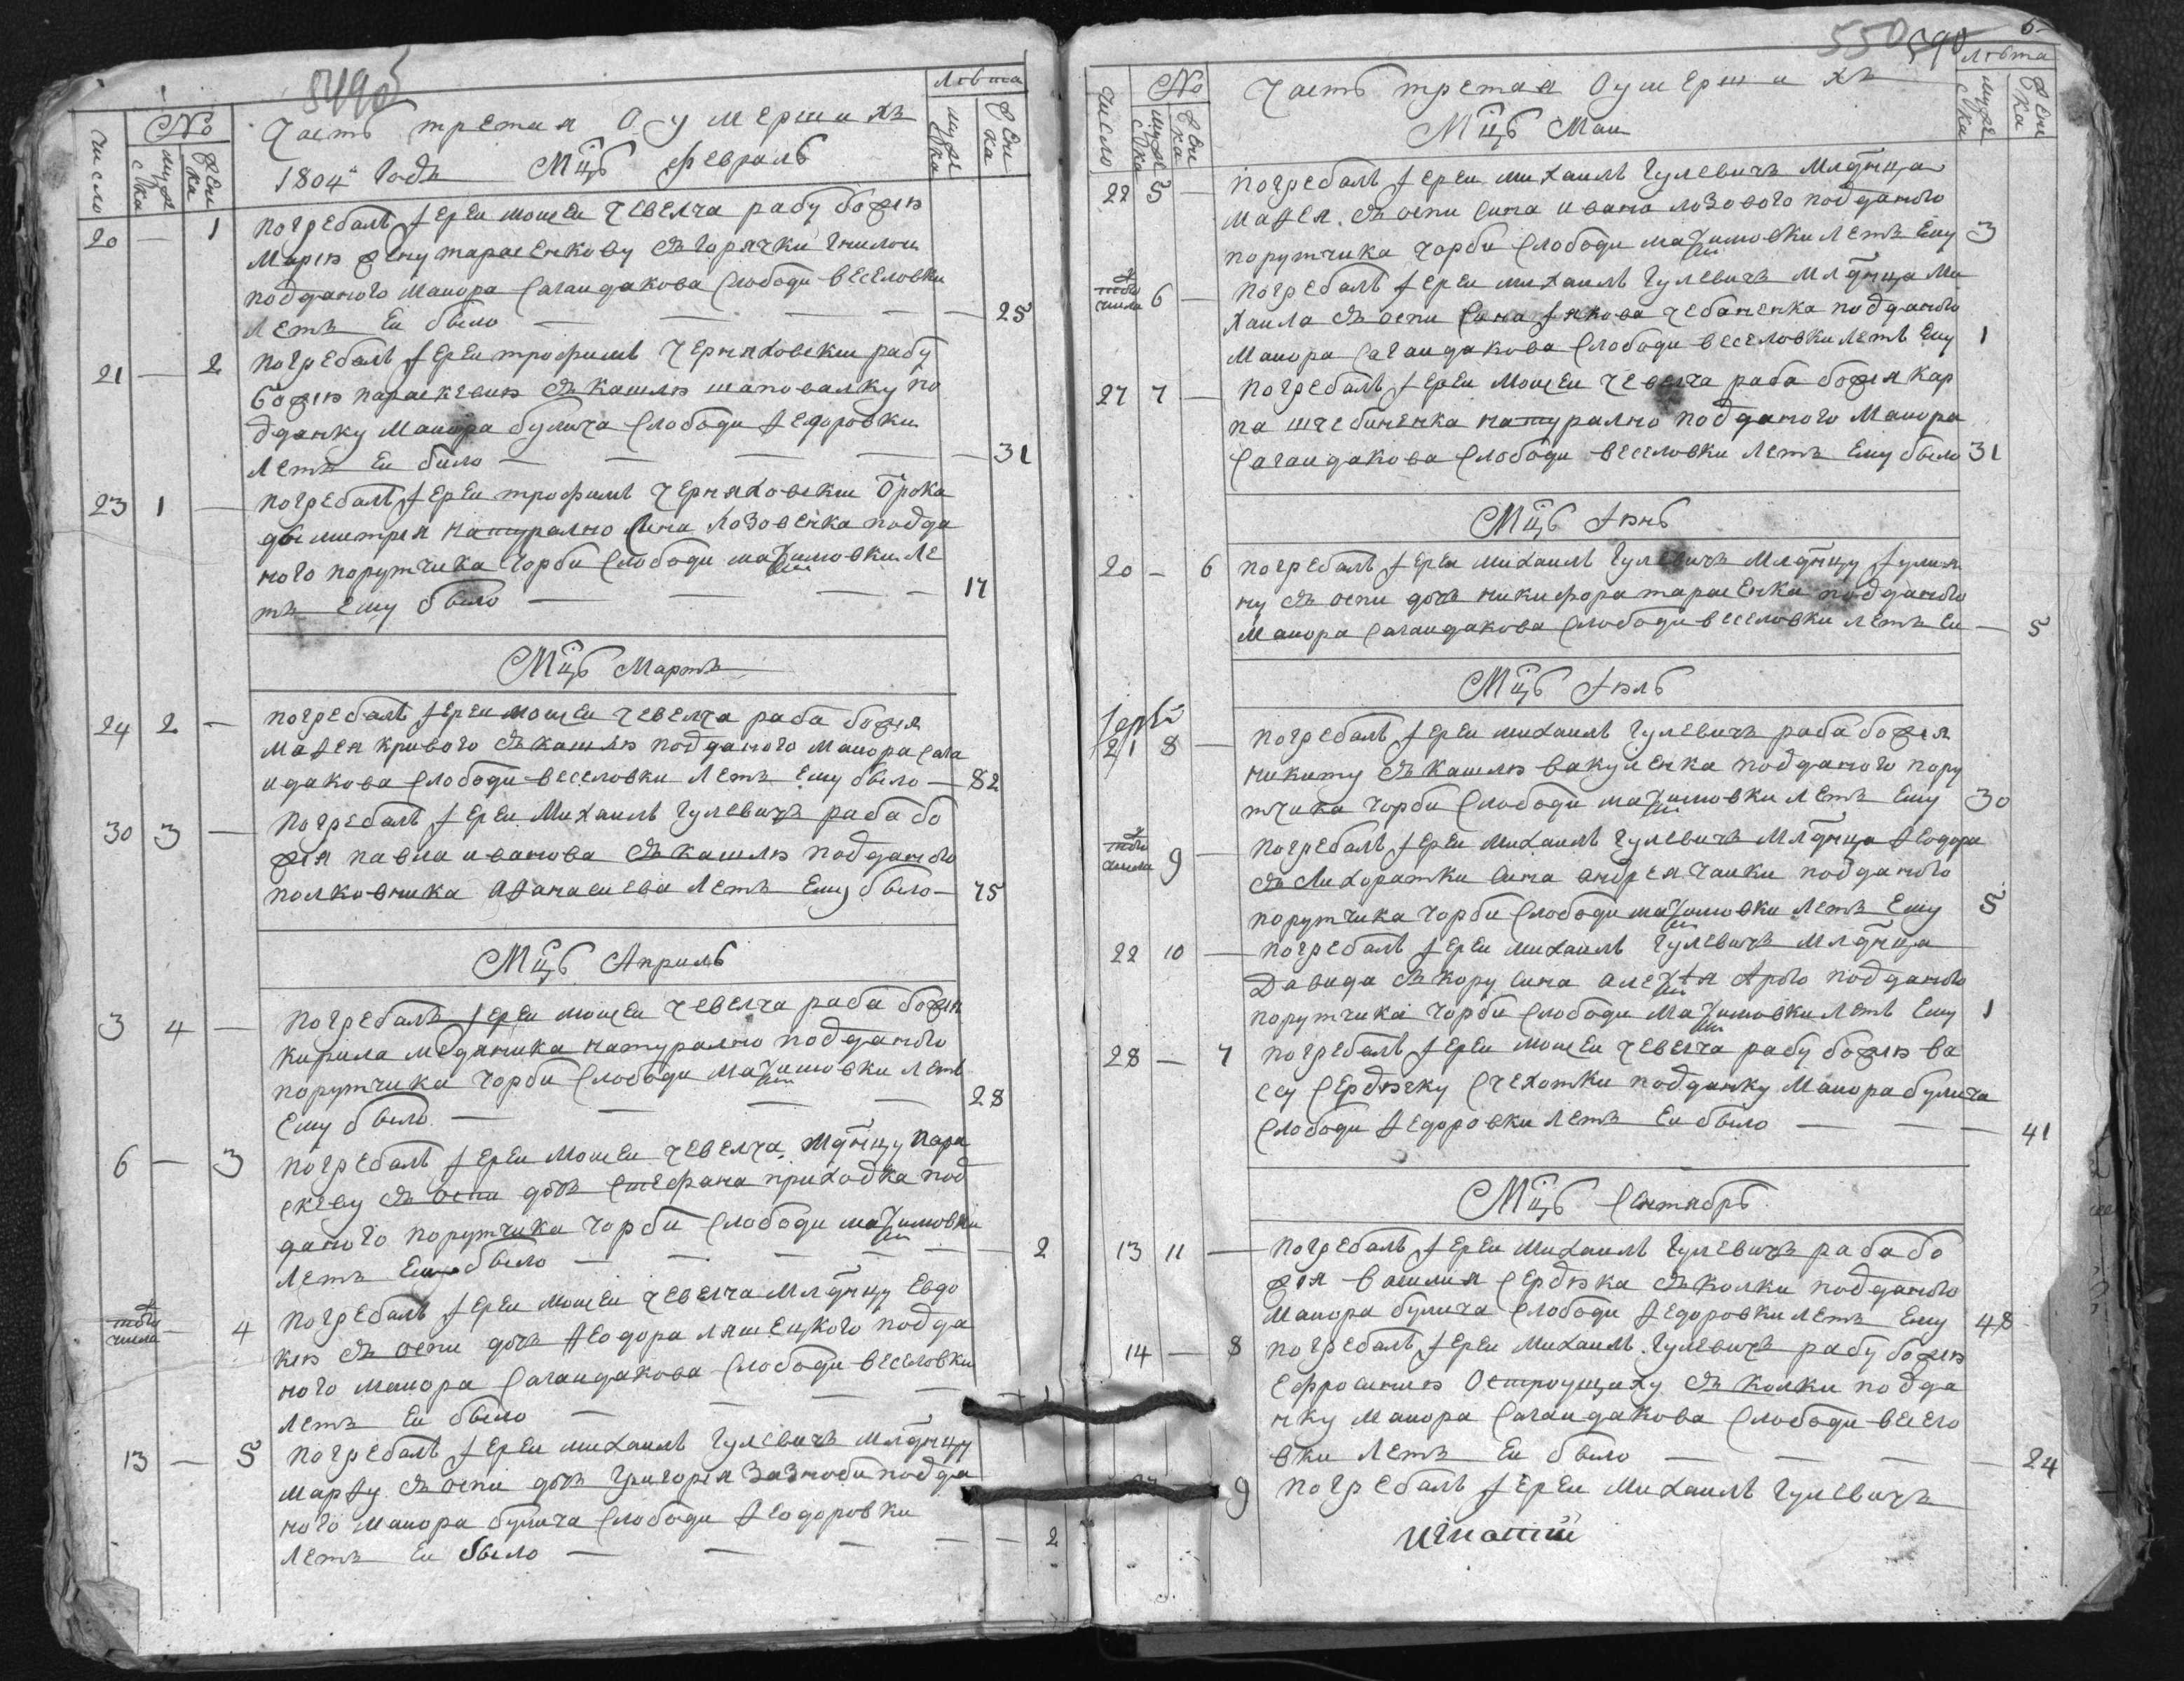 Часть третая О умершихъ
1804 Годъ Мцъ Февраль
Число
№
Лѣта
20 — 1 погребалъ Іереи мосеи чевелча рабу божію
Марію жену тарасенкову съ горячки гнилои
подданого маиора Сагаидакова Слободи веселовки
летъ Еи было — — — — — 25
21 — 2 погребалъ Іереи трофимъ Черняховски рабу
божію параскевию съ кашлю шаповалку по
дданку Маиора булича Слободи Ѳедоровки
летъ Еи било — — — — — 31
23 1 — погребалъ Іереи трофимъ Черняховски отрока
дымитрия натурално Сина лозовенка подда
ного порутчика Чорби Слободи маѯимовки ле
тъ Ему было — — — — 17
Мцъ Мартъ
24 2 — погребалъ Іереи мосеи чевелча раба божія
маѳея кривого съ кашлю подданого маиора Сага
идакова Слободи веселовки летъ Ему было — 82
30 3 — погребалъ Іереи Михаилъ Гулевичъ раба бо
жія павла иванова съ кашлю подданого
полковника аѳанасиева летъ Ему было — 75
Мцъ Априль
3 4 — погребалъ Іереи мосеи чевелча раба божія
кирила медяника натурално подданого
порутчика Чорби Слободи маѯимовки летъ
Ему было — — — — 28
6 — 3 погребалъ Іереи Мосеи чевелча Мднцу пара
скеву съ оспи дочъ Стефана приходка под
даного порутчика Чорби Слободи маѯимовки
летъ Еи было — — — — — 2
того числа — 4 погребалъ Іереи мосеи чевелча младнцу Евдо
кию съ оспи дочъ Ѳеодора ляшецкого подда
ного маиора Сагаидакова Слободи веселовки
летъ Еи было — — — — — 1
13 — 5 погребалъ Іереи михаилъ Гулевичъ младнцу
марѳу съ оспи дочъ Григорія Зазноби подда
ного маиора булича Слободи Ѳеодоровки
летъ Еи было — — — — — 2
550 590
Часть третая Оумершихъ
Мцъ Маи
Число
№
Лѣта
22 5 — погребалъ Іереи михаилъ Гулевичъ младнца
маѳея съ оспи Сина ивана лозового подданого
порутчика Чорби Слободи маѯимовки летъ Ему 3
того числа 6 — погребалъ Іереи михаилъ Гулевичъ младнца Ми
хаила съ оспи Сина Іякова чебаненка подданого
Маиора Сагаидакова Слободи веселовки летъ Ему 1
27 7 — погребалъ Іереи Мосеи чевелча раба божія кар
па щебиненка натурално подданого Маиора
Сагаидакова Слободи веселовки летъ Ему было 31
Мцъ Іюнь
20 — 6 погребалъ Іереи михаилъ Гулевичъ младнцу Іулия
ну съ оспи дочъ никифора тарасенка подданого
маиора Сагаидакова Слободи веселовки летъ Еи — 5
Мцъ Іюль
21 8 — погребалъ Іереи михаилъ Гулевичъ раба божія
никиту съ кашлю вакуленка подданого пору
тчика Чорби Слободи маѯимовки летъ Ему 30
того числа 9 — погребалъ Іереи михаилъ Гулевичъ младнца Ѳеодора
съ лихоратки Сина андрея чаики подданого
порутчика Чорби Слободи маѯимовки летъ Ему 5
22 10 — погребалъ Іереи михаилъ Гулевичъ младнца
Давида съ кору Сина алеѯія подданого
порутчика Чорби Слободи маѯимовки летъ Ему 1
28 — 7 погребалъ Іереи мосеи чевелча рабу божію ва
ссу Сердючку Счехотки подданку маиора булича
Слободи Ѳедоровки летъ Еи было — — — 41
Мцъ Сентябрь
13 11 — погребалъ Іереи михаилъ Гулевичъ раба бо
жія василия Сердюка съ колки подданого
маиора булича Слободи Ѳедоровки летъ Ему 48
14 — 8 погребалъ Іереи михаилъ Гулевичъ рабу божію
Ефросинию Остроущиху съ колки подда
нку маиора Сагаидакова Слободи весело
вки летъ Еи было — — — — 24
9 погребалъ Іереи михаилъ Гулевичъ